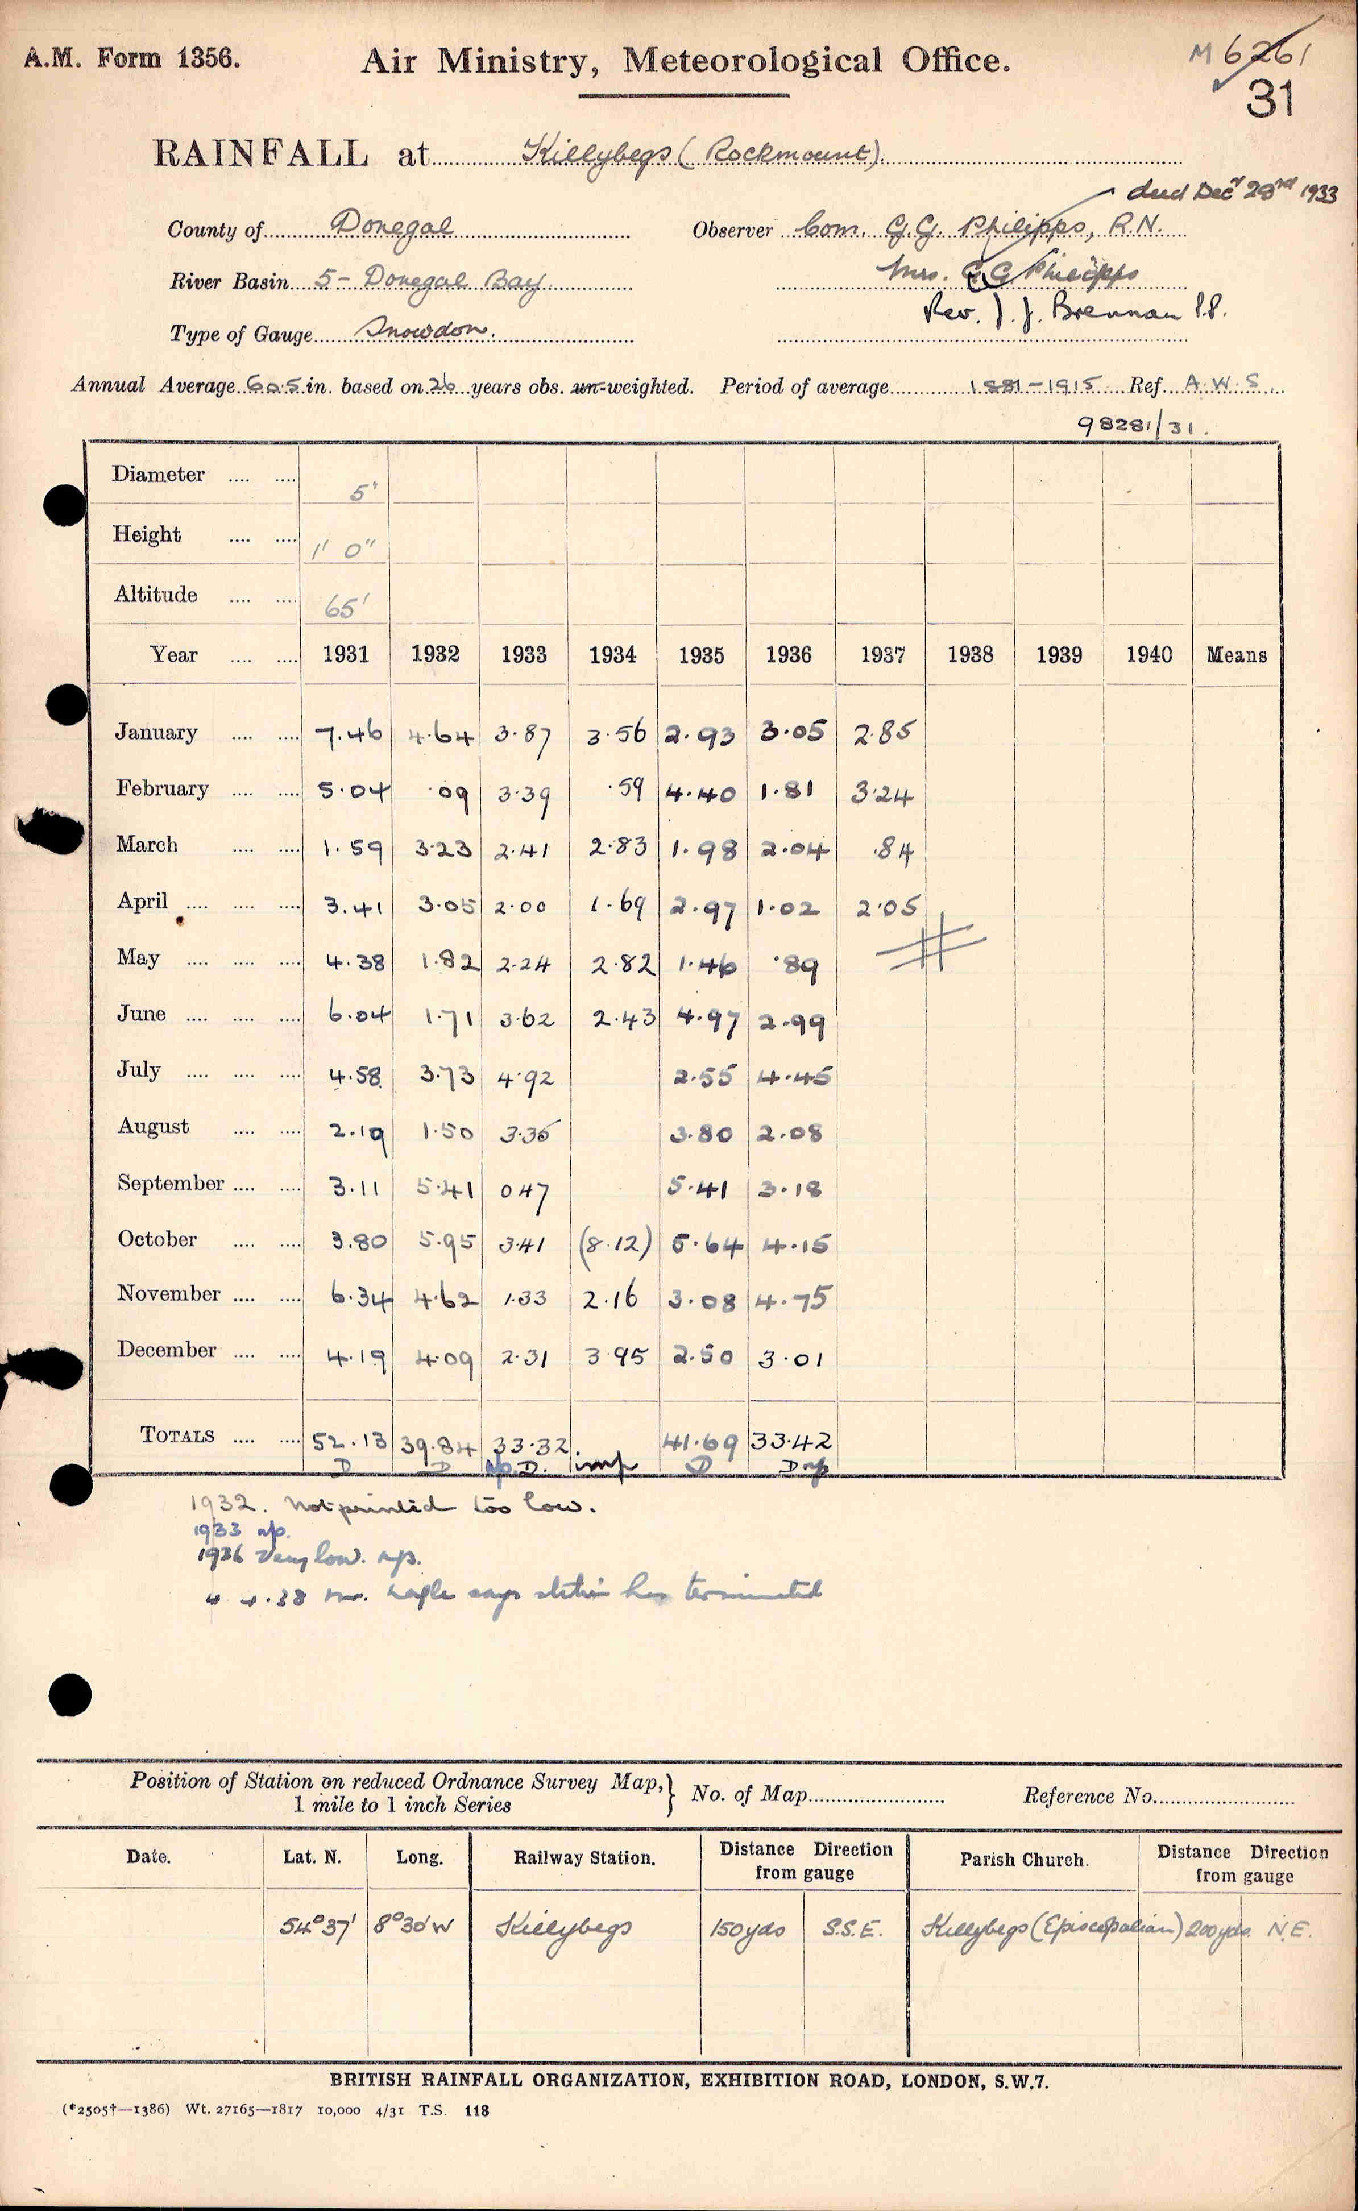 A.M. Form 1356. Air Ministry, Meteorological Office. M 6261
31
RAINFALL at Killybegs (Rockmount).
died Decr 28nd 1933
County of Donegal Observer Com. G.G. Philipps, R.N.
River Basin 5 - Donegal Bay Mrs. G G Philipps
Type of Gauge Snowdon. Rev. J. J. Brennan P.P.
Annual Average 60.5 in. based on 26 years obs. un-weighted. Period of average 1881-1915 Ref. A.W.S.
98281/31.
Diameter 5"
Height 1' 0"
Altitude 65'
Year 1931 1932 1933 1934 1935 1936 1937 1938 1939 1940 Means
January 7.46 4.64 3.87 3.56 2.93 3.05 2.85
February 5.04 .09 3.39 .59 4.40 1.81 3.24
March 1.59 3.23 2.41 2.83 1.98 2.04 .84
April 3.41 3.05 2.00 1.69 2.97 1.02 2.05
May 4.38 1.82 2.24 2.82 1.46 .89
June 6.04 1.71 3.62 2.43 4.97 2.99
July 4.58 3.73 4.92 2.55 4.45
August 2.19 1.50 3.35 3.80 2.08
September 3.11 5.41 0.47 5.41 3.18
October 3.80 5.95 3.41 (8.12) 5.64 4.15
November 6.34 4.62 1.33 2.16 3.08 4.75
December 4.19 4.09 2.31 3.95 2.50 3.01
TOTALS 52.13 39.84 33.32 41.69 33.42
D D np. D. imp D D np
1932. Not printed too low.
1933 np.
1936 Very low. np.
4.4.38 Mr. says station has terminated
Position of Station on reduced Ordnance Survey Map, 1 mile to 1 inch Series } No. of Map Reference No.
Date. Lat. N. Long. Railway Station. Distance Direction from gauge Parish Church. Distance Direction from gauge
54°37' 8°30'W Killybegs 150yds S.S.E. Killybegs (Episcopalian) 200yds. N.E.
BRITISH RAINFALL ORGANIZATION, EXHIBITION ROAD, LONDON, S.W.7.
(*2505†—1386) Wt. 27165—1817 10,000 4/31 T.S. 118